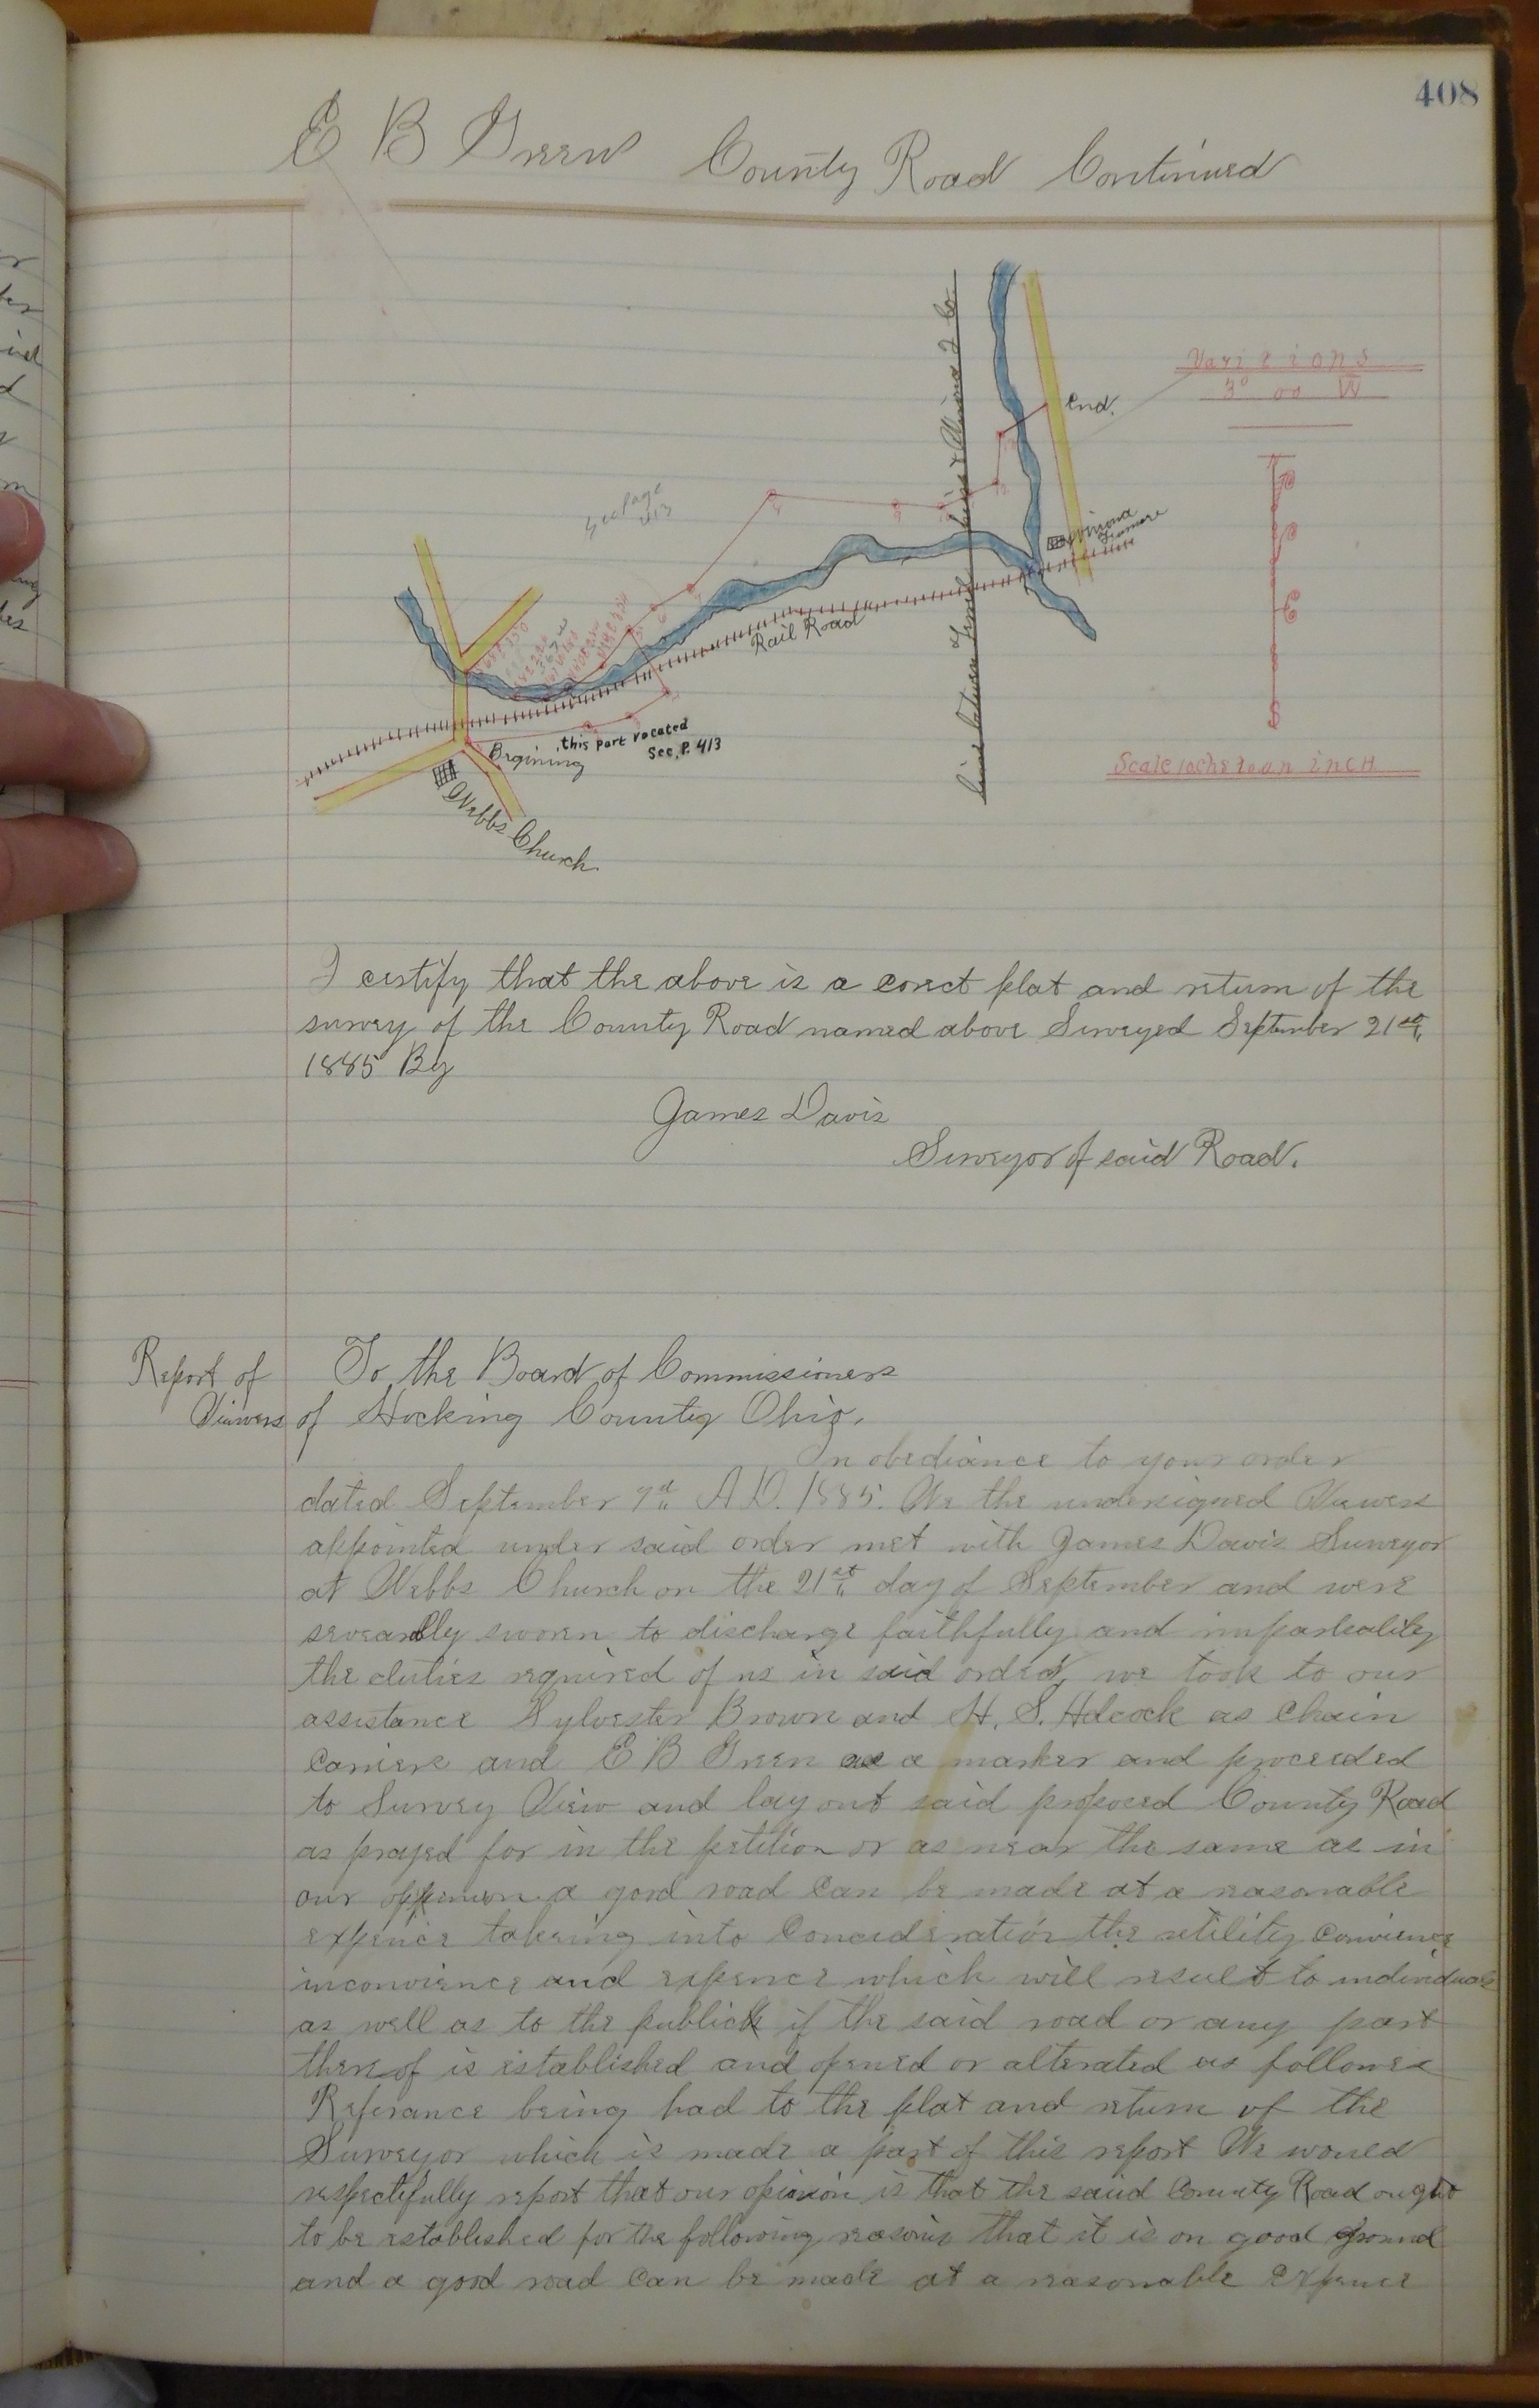 408
E B Green County Road Continued
Variations
3° 00 W
End.
See Page
413
Winona
Furnace
Rail Road
line between
this part vacated
See, P. 413
Begining
Webbs Church
Scale 10 chs to an inch
I certify that the above is a corect plat and return of the
survey of the County Road named above Surveyed September 21st
1885 By
James Davis
Surveyor of said Road.
Report of
Viewers
To the Board of Commissioners
of Hocking County Ohio.
In obediance to your order
dated September 7th A.D. 1885. We the undersigned Viewers
appointed under said order met with James Davis Surveyor
at Webbs Church on the 21st day of September and were
severally sworn to discharge faithfully and imparteality
the duties required of us in said order, we took to our
assistance Sylvester Brown and H. S. Adcock as Chain
Cariers and E B Green as a marker and proceeded
to Survey View and lay out said proposed County Road
as prayed for in the petition or as near the same as in
our oppenion a good road can be made at a reasonable
expence takeing into Concideration the utility Convience
inconvience and expence which will result to individuals
as well as to the publick if the said road or any part
there of is established and opened or alterated as followes
Referance being had to the plat and return of the
Surveyor which is made a part of this report We would
respectifully report that our opinion is that the said County Road ought
to be established for the following reasons that it is on good ground
and a good road can be made at a reasonable expence